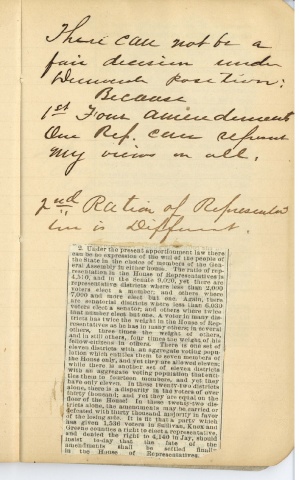 There can not be a
fair decision under
Democratic position:
Because
1st Four amendments
One Rep. can represent
my views on all.
2nd Ration of Representa
tive is Different.
2. Under the present apportionment law there
can be no expression of the will of the people of
the State in the choice of members of the Gen-
eral Assembly in either house. The ratio of rep-
resentation in the House of Representatives is
4,510, and in the Senate 9,020, yet there are
representative districts where less than 3,000
voters elect a member, and others where
7,000 and more elect but one. Again, there
are senatorial districts where less than 6,030
voters elect a senator, and others where twice
that number elect but one. A voter in many dis-
tricts has twice the weight in the House of Rep-
resentatives as he has in many others; in several
others, three times the weight of others,
and in still others, four times the weight of his
fellow-citizens in others. There is one set of
eleven districts with an aggregate voting popu-
lation which entitles them to seven members of
the House only, and yet they are allowed eleven;
while there is another set of eleven districts
with an aggregate voting population that enti-
tles them to fourteen members, and yet they
have only eleven. In these twenty-two districts
alone, there is a disparity in the voters of over
thirty thousand; and yet they are equal on the
floor of the House! In these twenty-two dis-
tricts alone, the amendments may be carried or
defeated with thirty thousand majority in favor
of the losing side. It is fit that a party which
has given 1,536 voters in Sullivan, Knox and
Greene counties a right to elect a representative,
and denied the right to 4,140 in Jay, should
insist to-day that the fate of the
amendments shall be settled finally
in the House of Representatives.